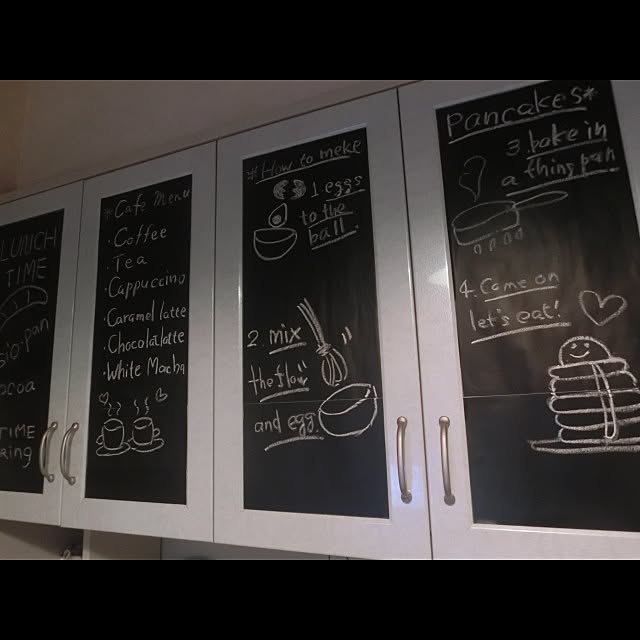 LUNCH
TIME
pan
ocoa
TIME
ring
*Cafe Menu
·Coffee
·Tea
·Cappuccino
·Caramel latte
·Chocolalatte
·White Mocha
*How to make
1 eggs
to the
ball.
2 mix
the flow
and egg.
Pancakes*
3. bake in
a thing pan
4. Come on
let's eat!